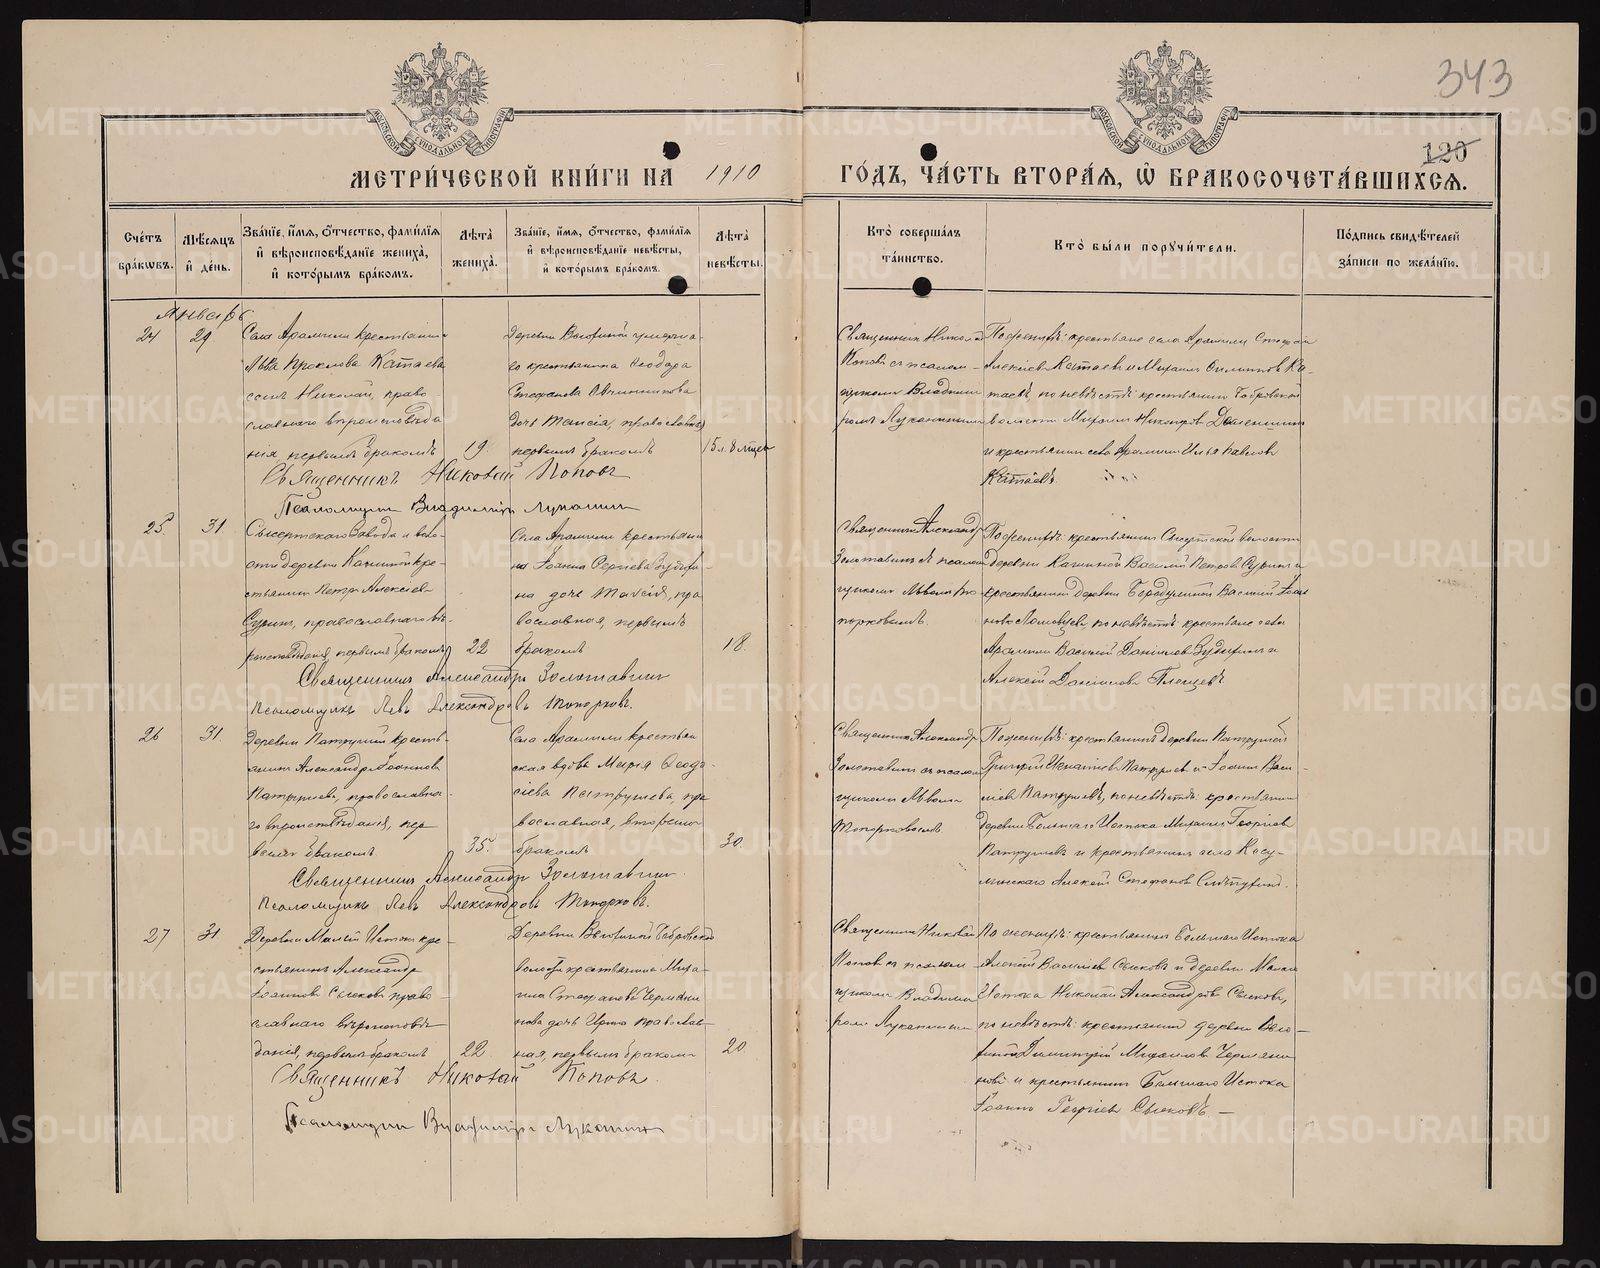 343
120
МЕТРИ́ЧЕСКОЙ КНИ́ГИ НА 1910 ГО́ДЪ, ЧА́СТЬ ВТОРА́Я, Ѡ БРАКОСОЧЕТА́ВШИХСЯ.
Сче́тъ бра́кѡвъ.
Мѣ́сяцъ и де́нь.
Зва́нїе, и́мя, ѻ́тчество, фами́лїя и вѣроисповѣ́данїе жениха̀, и кото́рымъ бра́комъ.
Лѣ́та жениха̀.
Зва́нїе, и́мя, ѻ́тчество, фами́лїя и вѣроисповѣ́данїе невѣ́сты, и кото́рымъ бра́комъ.
Лѣ́та невѣ́сты.
Кто̀ соверша́лъ та́инство.
Кто̀ бы́ли поручи́тели.
По́дпись свидѣ́телей за́писи по жела́нїю.
Январь
24
29
Села Арамили крестьянина
Льва Проклова Катаева
сынъ Николай, право-
славнаго вѣроисповѣда
ния первымъ бракомъ
19.
Деревни
крестьянина Ѳеодора
Стефанова Овчинникова
дочь Таисія, православная
первымъ бракомъ
15 л. 8 мцев
Священник Николай
Попов съ псалом-
щиком Владими
ром Луканиным
По женихѣ: крестьяне села Арамили Стефан
Алексiев Катаев и Михаил Ка-
таевъ, по невѣстѣ: крестьянин Бобровской
волости Михаил Никаноров
и крестьянин села Арамили Илья Павлов
Катаевъ
Священникъ Николай Поповъ
Псаломщик Владимір Луканин
25.
31.
Сысертскаго Завода и воло-
сти деревни Кашиной кре-
стьянин Петр Алексіев
Сурин, православнаго вѣ-
роисповѣданія, первымъ бракомъ
22
Села Арамили крестьяни
на Іоанна Сергіева
на дочь Таисія, пра
вославная, первымъ
бракомъ
18.
Священник Александр
Золотавинъ съ псалом
щиком Львом То-
порковымъ.
По женихѣ: крестьянин Сысертской волости
деревни Кашиной Василий Петров Сурин и
крестьянин деревни Бородулиной Василий Іоан
нов , по невѣстѣ: крестьяне села
Арамили Василий Даніилов и
Алексій Даніилов
Священник Александръ Золотавин
Псаломщикъ Левъ Александровъ Топорковъ.
26
31
Деревни Патрушей кресть-
янин Александр Іоаннов
Патрушев, православна-
го вѣроисповѣданія, пер
вымъ бракомъ
35.
Села Арамили крестьян
ская вдова Марія Ѳеодо-
сіева Патрушева, пра
вославная, вторымъ
бракомъ
30.
Священник Александр
Золотавинъ съ псалом
щиком Львом
Топорковымъ
По женихѣ: крестьянинъ деревни Патрушей
Григорій Игнатіев Патрушев и Іоанн Васи-
ліев Патрушевъ, по невѣстѣ: крестьянин
деревни Большаго Истока Михаил Георгіев
Патрушевъ и крестьянин села Косу-
линскаго Алексій Стефанов
Священник Александр Золотавин.
Псаломщикъ Левъ Александровъ Топорковъ.
27
31.
Деревни Малый Исток кре-
стьянинъ Александр
Іоаннов Сысков право-
славнаго вѣроисповѣ
данія, первымъ бракомъ
22.
Деревни Бобровской
волости крестьянина Миха-
ила Стефанова Чермяни-
нова дочь православ-
ная, первым бракомъ
20.
Священник Николай
Попов съ псалом
щиком Владими
ром Луканиным
По женихѣ: крестьянин Большаго Истока
Алексій Василіев Сысковъ и деревни Малаго
Истока Николай Александров Сысков,
по невѣстѣ: крестьянин деревни
Димитрій Михаилов Чермяни
нов и крестьянин Большаго Истока
Іоанн Георгіев Сысковъ. —
Священникъ Николай Поповъ.
Псаломщик Владимір Луканин
METRIKI.GASO-URAL.RU